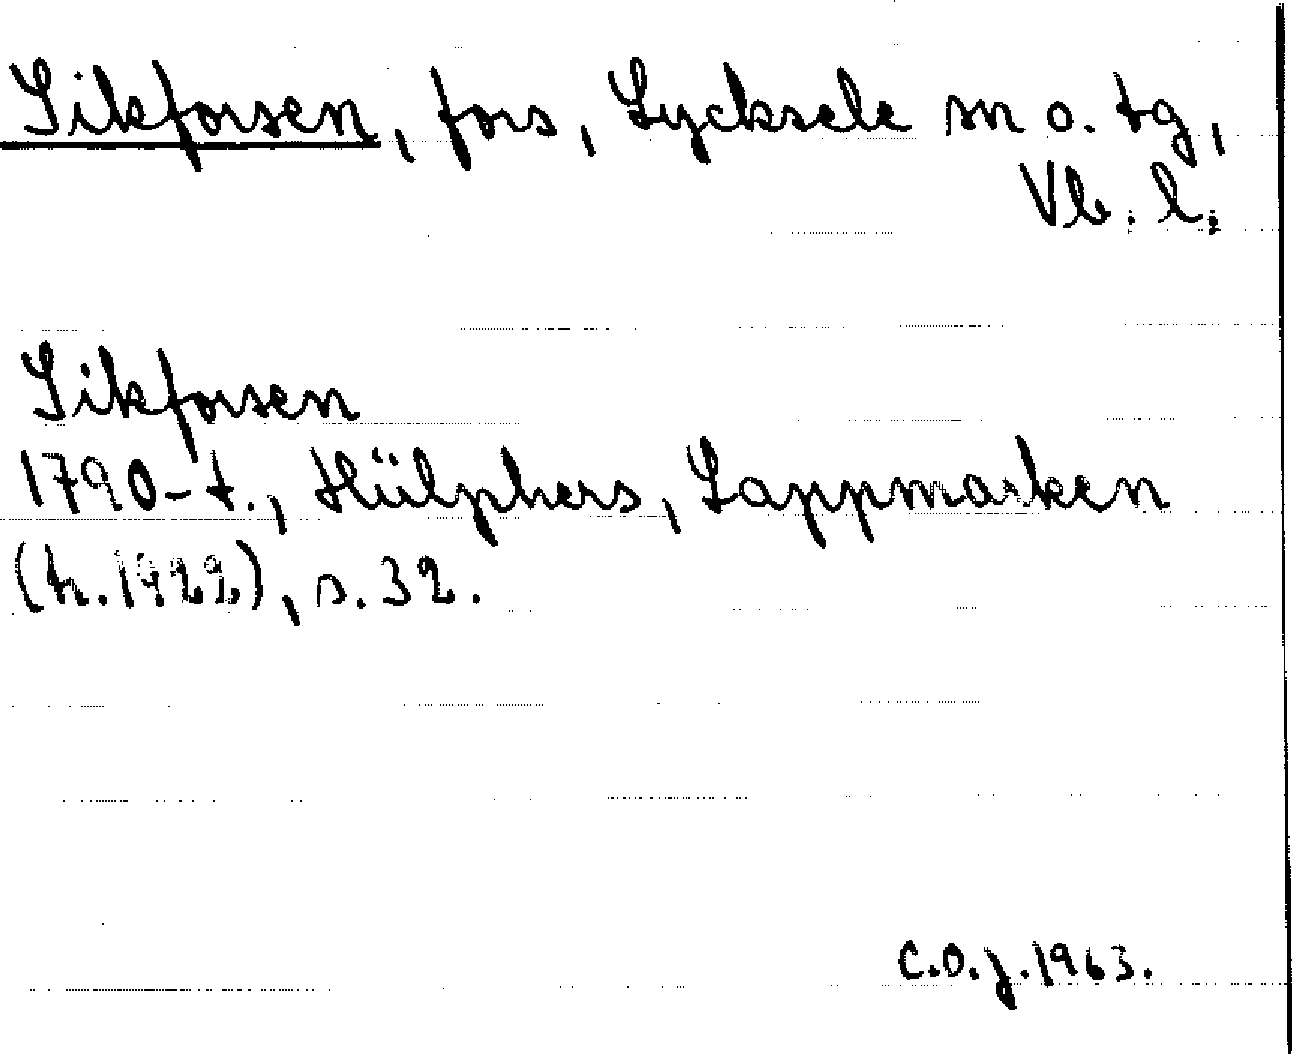 Sikforsen, fors, Lycksele sn o. tg,
Vb. l.
Sikforsen
1790-t., Hülphers, Lappmarken
(h. 1922), s. 32.
C.O.J. 1963.